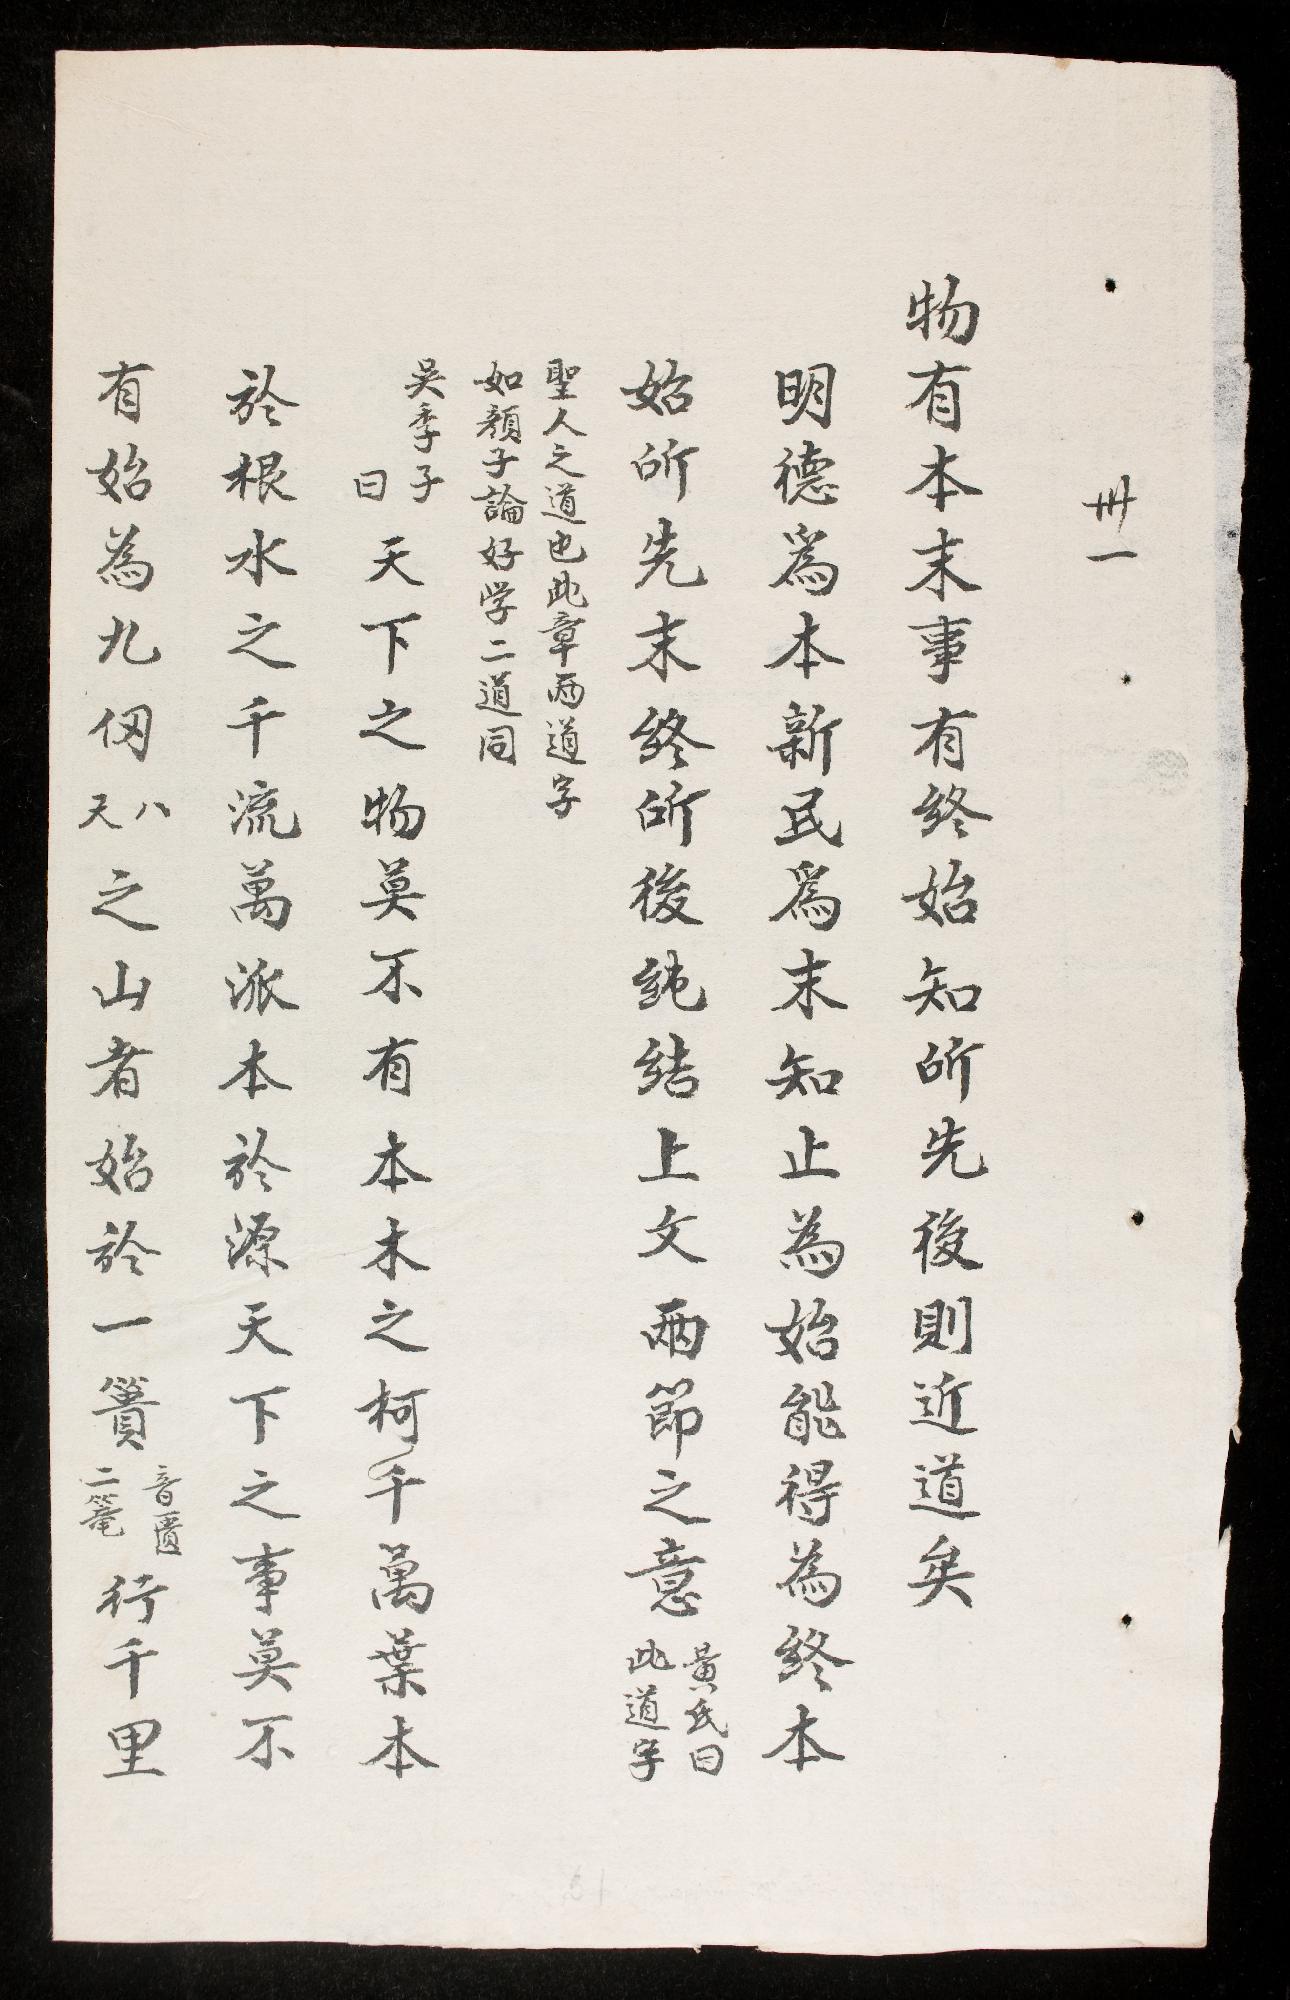 卅一
物有本末事有終始知所先後則近道矣
明德爲本新民爲末知止為始能得為終本
始所先末終所後純結上文兩節之意黃氏曰此道字
聖人之道也此章两道字
如顏子論好学二道同
吴季子曰天下之物莫不有本木之柯千萬葉本
於根水之千流萬派本於源天下之事莫不
有始為九仭八天之山者始於一簣音匱二篭行千里